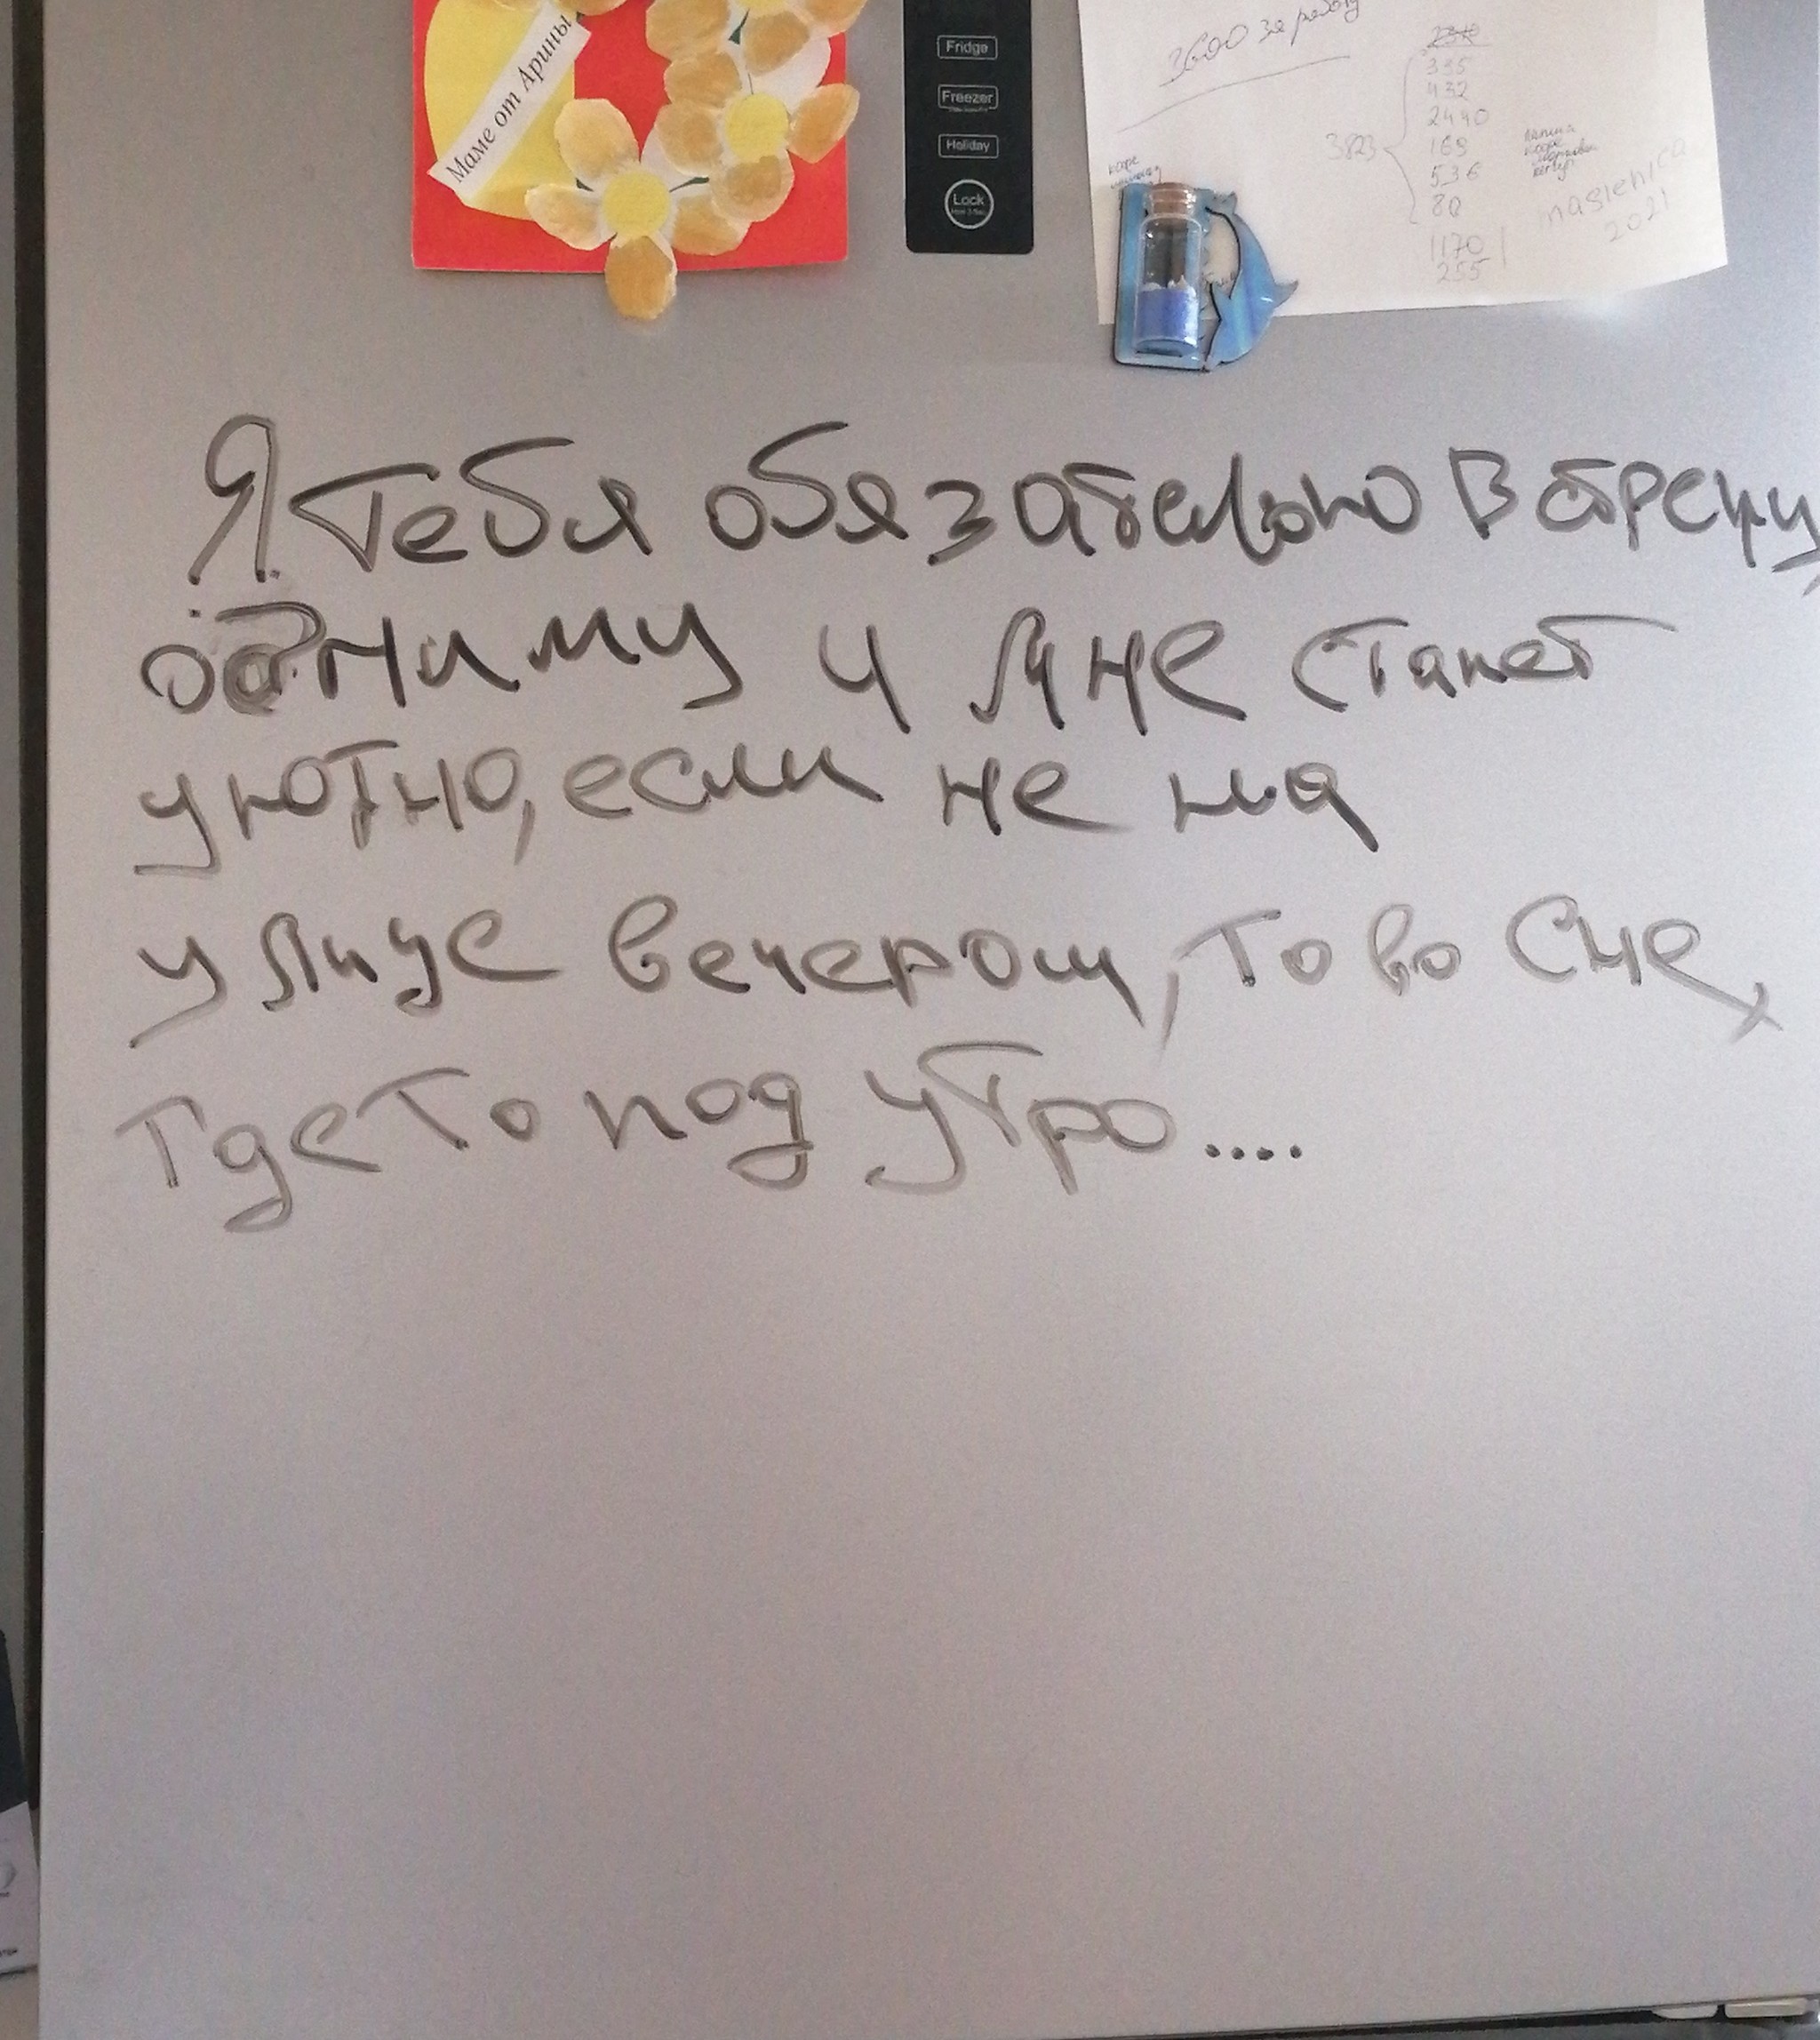 Маме от Арины
Fridge
Freezer
Holiday
Lock
3600 за работу
335
432
2490
3823
169
536
80
1170
255
maslenica
2021
Я тебя обязательно встречу,
обниму и мне станет
уютно, если не на
улице вечером, то во сне,
где то под утро....